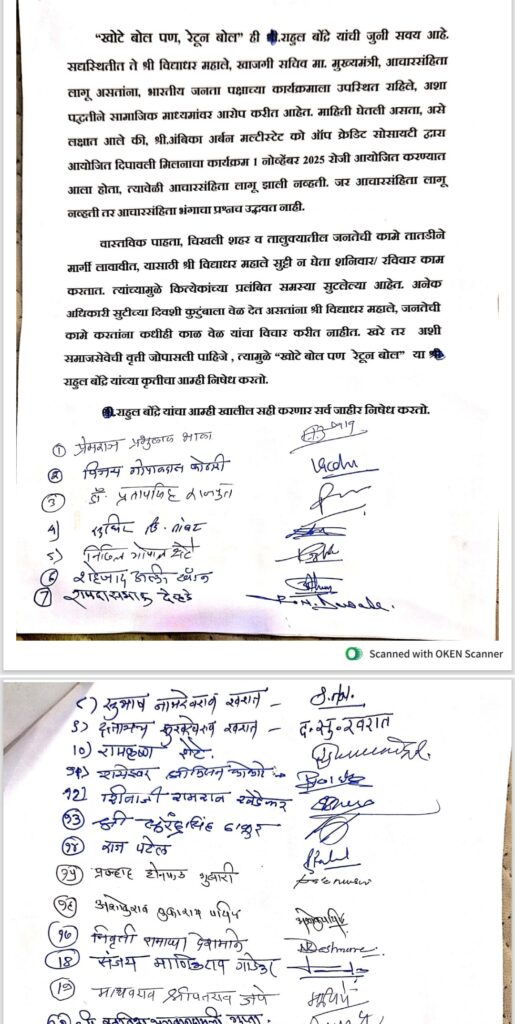 "खोटे बोल पण, रेटून बोल" ही श्री.राहुल बोंद्रे यांची जुनी सवय आहे.
सद्यस्थितीत ते श्री विद्याधर महाले, खाजगी सचिव मा. मुख्यमंत्री, आचारसंहिता
लागू असतांना, भारतीय जनता पक्षाच्या कार्यक्रमाला उपस्थित राहिले, अशा
पद्धतीने सामाजिक माध्यमांवर आरोप करीत आहेत. माहिती घेतली असता, असे
लक्षात आले की, श्री.अंबिका अर्बन मल्टीस्टेट को ऑप क्रेडिट सोसायटी द्वारा
आयोजित दिपावली मिलनाचा कार्यक्रम १ नोव्हेंबर 2025 रोजी आयोजित करण्यात
आला होता, त्यावेळी आचारसंहिता लागू झाली नव्हती. जर आचारसंहिता लागू
नव्हती तर आचारसंहिता भंगाचा प्रश्नच उद्भवत नाही.
वास्तविक पाहता, चिखली शहर व तालुक्यातील जनतेची कामे तातडीने
मार्गी लावावीत, यासाठी श्री विद्याधर महाले सुट्टी न घेता शनिवार/ रविवार काम
करतात. त्यांच्यामुळे कित्येकांच्या प्रलंबित समस्या सुटलेल्या आहेत. अनेक
अधिकारी सुटीच्या दिवशी कुटुंबाला वेळ देत असतांना श्री विद्याधर महाले, जनतेची
कामे करतांना कधीही काळ वेळ यांचा विचार करीत नाहीत. खरे तर अशी
समाजसेवेची वृत्ती जोपासली पाहिजे , त्यामुळे "खोटे बोल पण रेटून बोल" या श्री
राहुल बोंद्रे यांच्या कृतीचा आम्ही निषेध करतो.
श्री.राहुल बोंद्रे यांचा आम्ही खालील सही करणार सर्व जाहीर निषेध करतो.
1 प्रेमराज
2 विजय गोपालदास कोठारी
3 डॉ. प्रतापसिंह राजपूत
4)
5) गोपाल शेटे
6 शहेजाद अली खान
7 रामदासभाऊ देव्हडे
Scanned with OKEN Scanner
८) सुभाष नामदेवराव खरात -
९) खरात - द. सु. खरात
10) रामकृष्ण शेटे.
११) रामेश्वर
१२) शिवाजी रामराव खेडेकर
१३) श्री ठाकुर
१४ राज पटेल
१५
१६
१७ निवृत्ती देशमाने
18 संजय गाडेकर
19 माधवराव श्रीपतराव